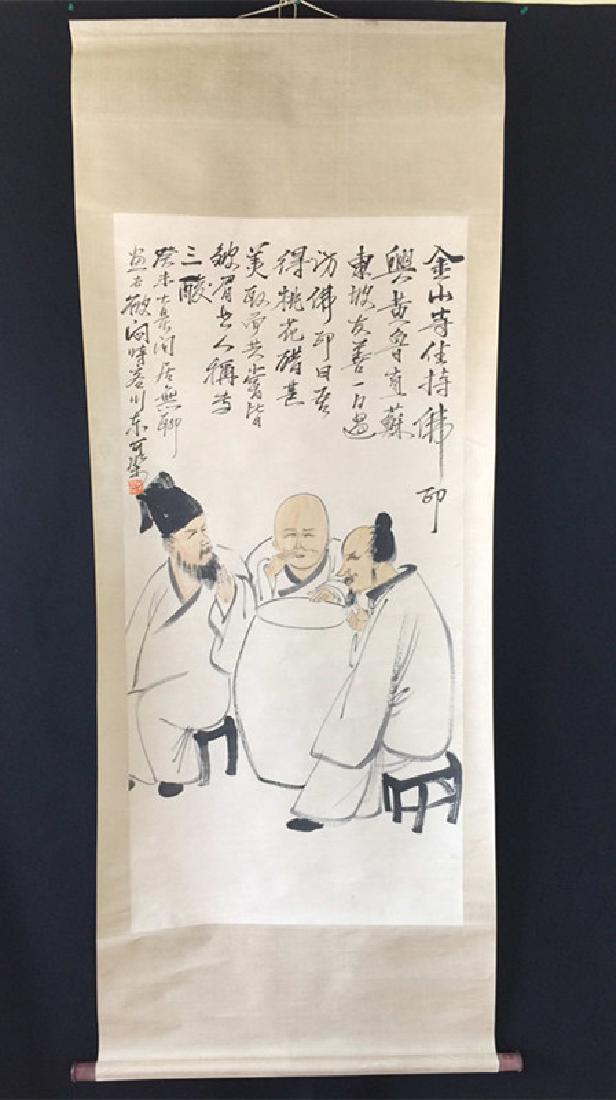 金山寺住持佛印
與黄魯直蘇
東坡友善一日過
訪佛印曰吾
得桃花醋甚
美取而共嘗皆
皺眉世人稱為
三酸
癸未大暑閒居無聊
画